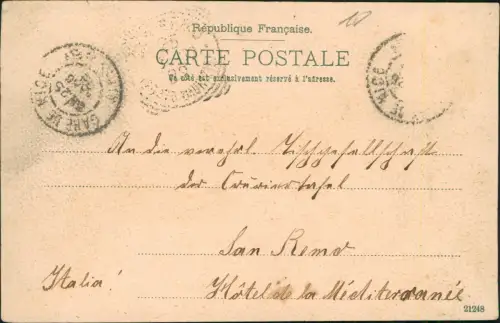 10
République Française.
CARTE POSTALE
Ce côté est exclusivement réservé à l'adresse.
GARE DE NICE
DE NICE
An die verehrl. Tischgesellschaft
der Couriertafel
San Remo
Italia!
Hôtel de la Méditerranée
21248